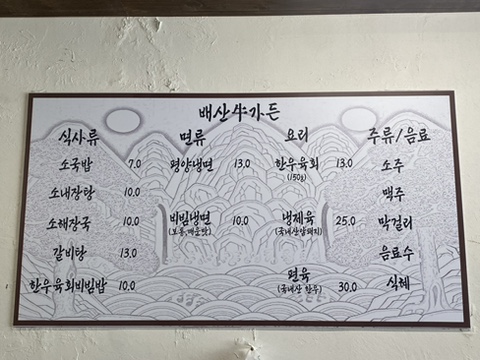 배산牛가든
식사류
소국밥 7.0
소내장탕 10.0
소해장국 10.0
갈비탕 13.0
한우육회비빔밥 10.0
면류
평양냉면 13.0
비빔냉면 10.0
(보통,매운맛)
요리
한우육회 13.0
(150g)
냉제육 25.0
(국내산암돼지)
편육 30.0
(국내산 한우)
주류/음료
소주
맥주
막걸리
음료수
식혜